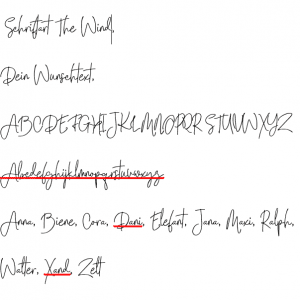 Schriftart The Wind,
Dein Wunschtext,
ABCDEFGHIJKLMNOPQRSTUVWXYZ
Abcdefghijklmnopqrstuvwxyz
Anna, Biene, Cora, Dani, Elefant, Jana, Maxi, Ralph,
Walter, Xand, Zett